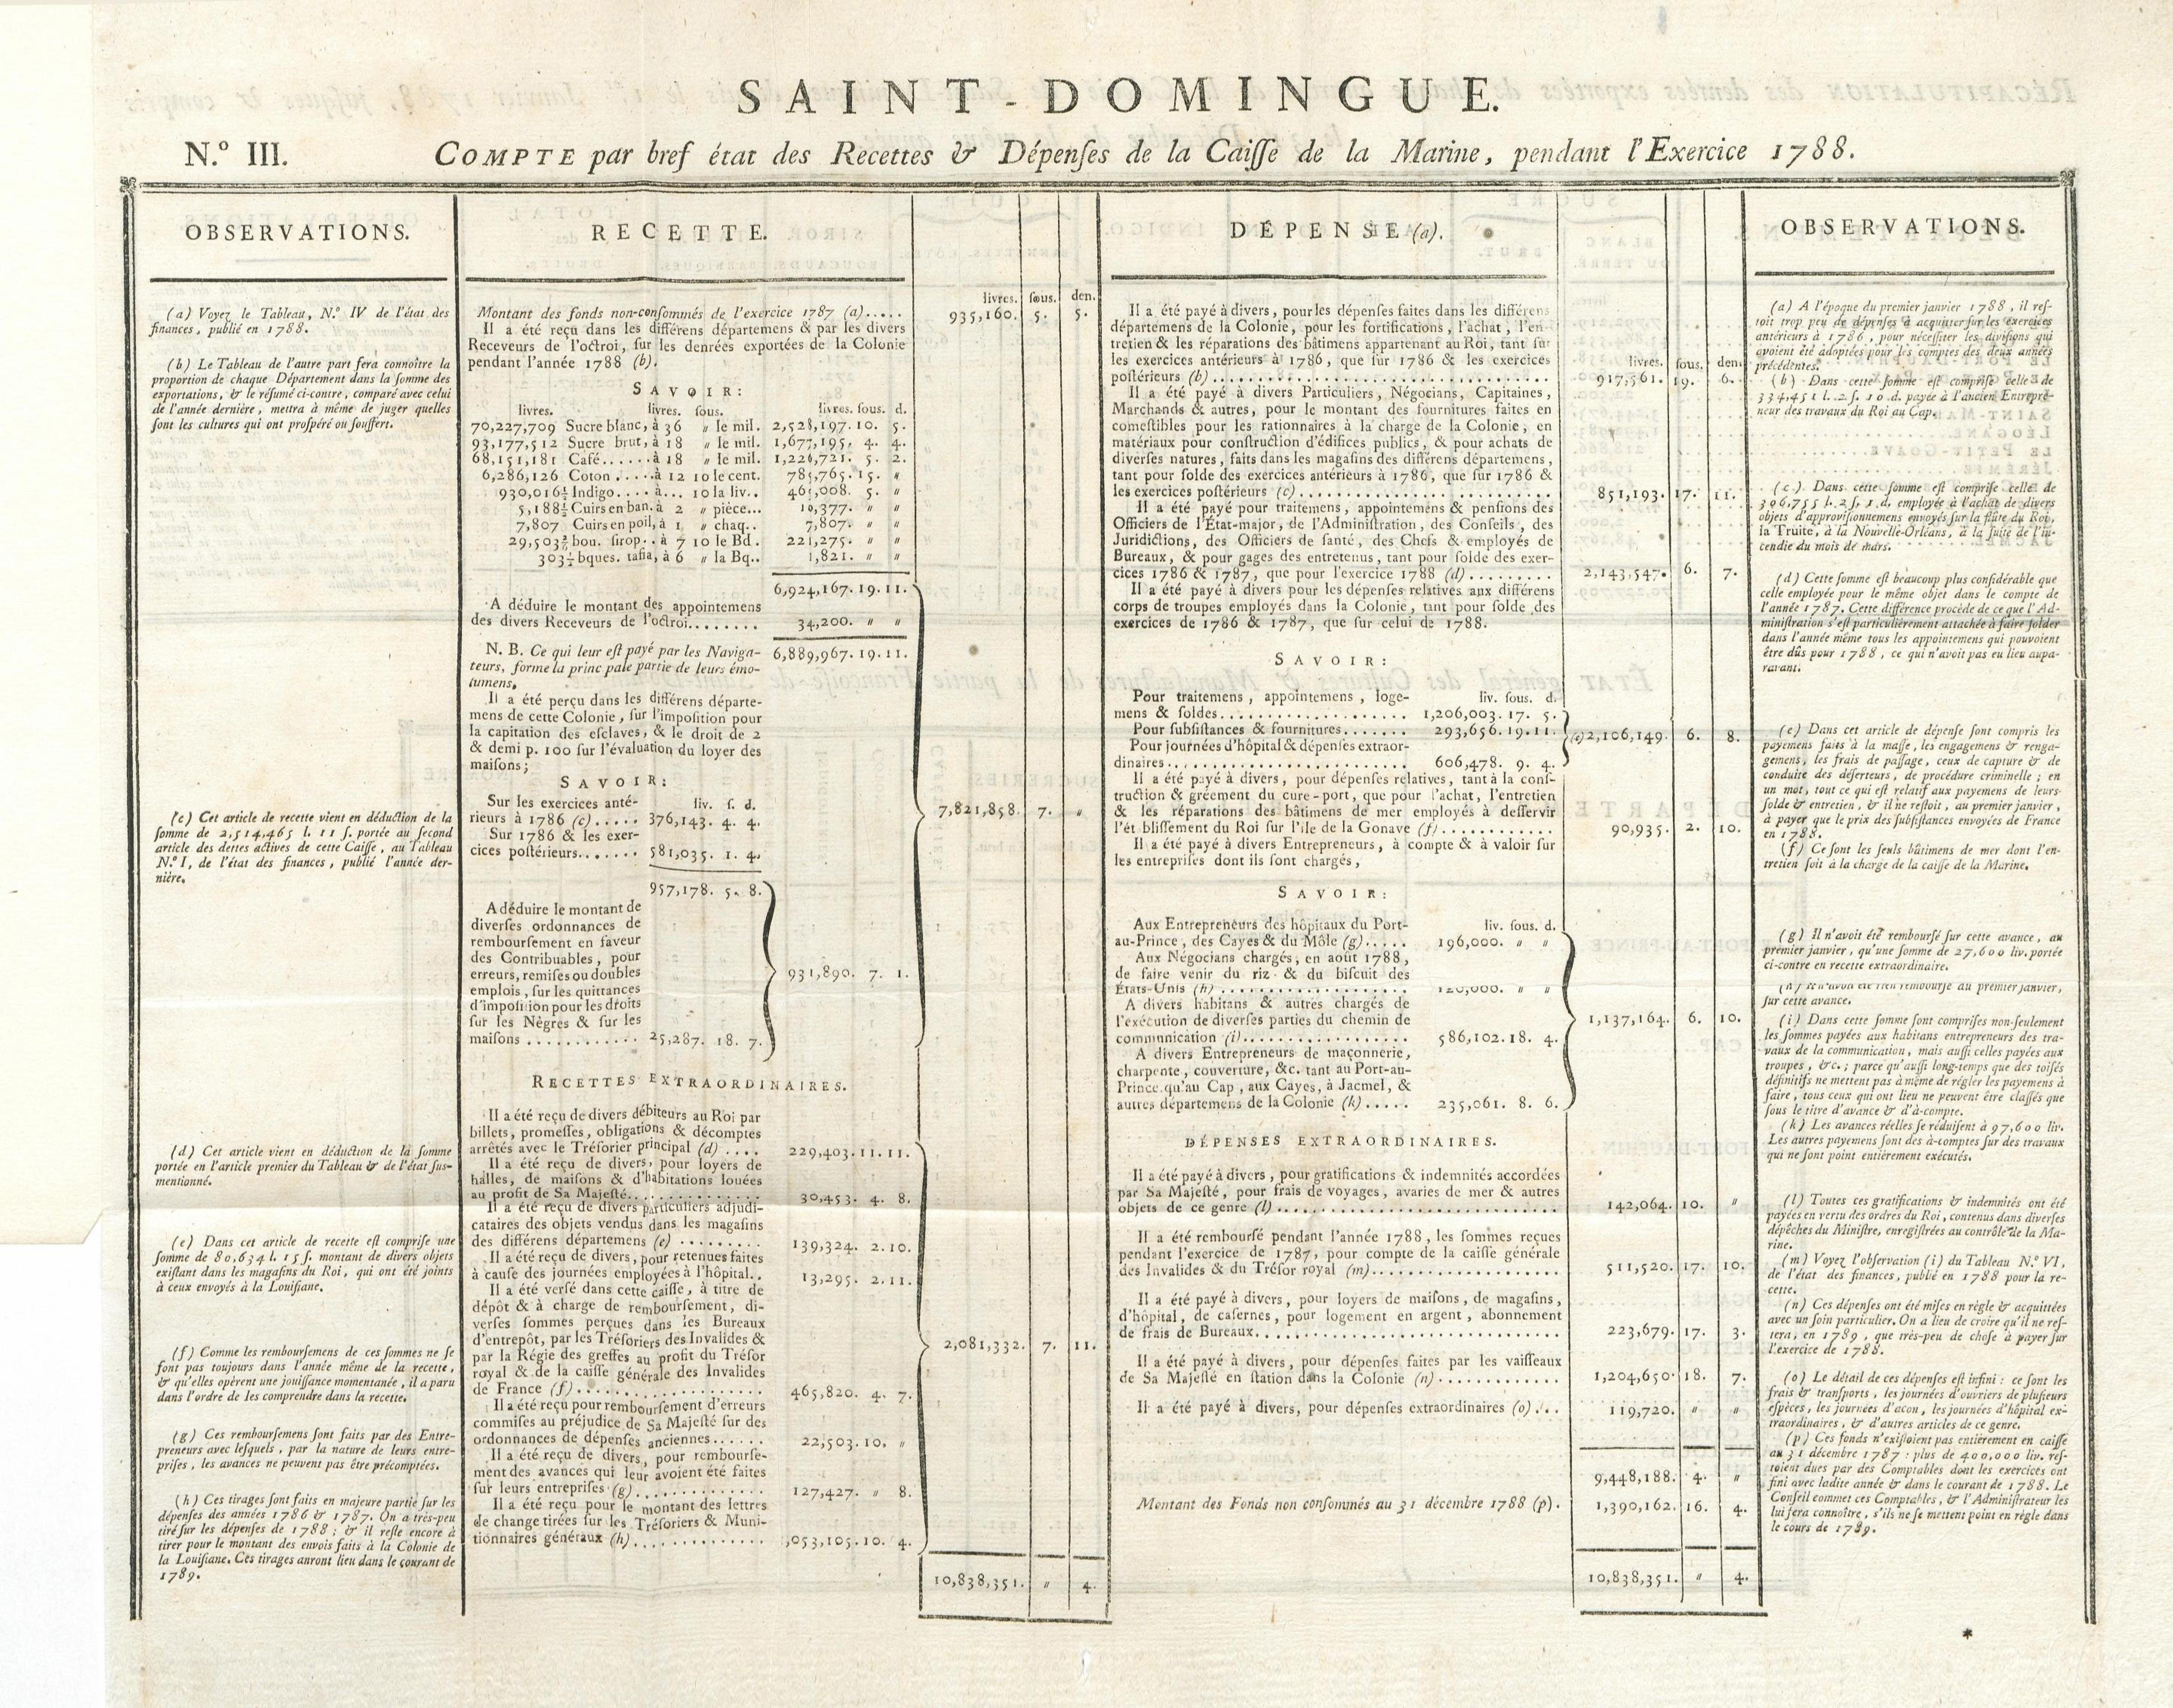 SAINT-DOMINGUE.
N.º III.
COMPTE par bref état des Recettes & Dépenſes de la Caiſſe de la Marine, pendant l'Exercice 1788.
OBSERVATIONS.
(a) Voyez le Tableau, N.º IV de l'état des
finances, publié en 1788.
(b) Le Tableau de l'autre part fera connoître la
proportion de chaque Département dans la ſomme des
exportations, & le réſumé ci-contre, comparé avec celui
de l'année dernière, mettra à même de juger quelles
ſont les cultures qui ont proſpéré ou ſouffert.
(c) Cet article de recette vient en déduction de la
ſomme de 2,514,465 l. 11 ſ. portée au ſecond
article des dettes actives de cette Caiſſe, au Tableau
N.º I, de l'état des finances, publié l'année der-
nière.
(d) Cet article vient en déduction de la ſomme
portée en l'article premier du Tableau & de l'état ſus-
mentionné.
(e) Dans cet article de recette eſt compriſe une
ſomme de 80,634 l. 15 ſ. montant de divers objets
exiſtant dans les magaſins du Roi, qui ont été joints
à ceux envoyés à la Louiſiane.
(f) Comme les rembourſemens de ces ſommes ne ſe
font pas toujours dans l'année même de la recette,
& qu'elles opèrent une jouiſſance momentanée, il a paru
dans l'ordre de les comprendre dans la recette.
(g) Ces rembourſemens ſont faits par des Entre-
preneurs avec leſquels, par la nature de leurs entre-
priſes, les avances ne peuvent pas être précomptées.
(h) Ces tirages ſont faits en majeure partie ſur les
dépenſes des années 1786 & 1787. On a très-peu
tiré ſur les dépenſes de 1788; & il reſte encore à
tirer pour le montant des envois faits à la Colonie de
la Louiſiane. Ces tirages auront lieu dans le courant de
1789.
RECETTE.
livres. ſous. den.
Montant des fonds non-conſommés de l'exercice 1787 (a)..... 935,160. 5. 5.
Il a été reçu dans les différens départemens & par les divers
Receveurs de l'octroi, ſur les denrées exportées de la Colonie
pendant l'année 1788 (b).
SAVOIR:
livres. livres. ſous. livres. ſous. d.
70,227,709 Sucre blanc, à 36 " le mil. 2,528,197. 10. 5.
93,177,512 Sucre brut, à 18 " le mil. 1,677,195. 4. 4.
68,151,181 Café......à 18 " le mil. 1,226,721. 5. 2.
6,286,126 Coton.....à 12 10 le cent. 785,765. 15. "
930,016½ Indigo....à... 10 la liv.. 465,008. 5. "
5,188½ Cuirs en ban. à 2 " pièce... 10,377. " "
7,807 Cuirs en poil, à 1 " chaq.. 7,807. " "
29,503 bou. ſirop..à 7 10 le Bd. 221,275. " "
303½ bques. tafia, à 6 " la Bq.. 1,821. " "
6,924,167. 19. 11.
A déduire le montant des appointemens
des divers Receveurs de l'octroi........ 34,200. " "
6,889,967. 19. 11.
N. B. Ce qui leur eſt payé par les Naviga-
teurs, forme la princ pale partie de leurs émo-
lumens.
Il a été perçu dans les différens départe-
mens de cette Colonie, ſur l'impoſition pour
la capitation des eſclaves, & le droit de 2
& demi p. 100 ſur l'évaluation du loyer des
maiſons;
SAVOIR:
Sur les exercices anté- liv. ſ. d.
rieurs à 1786 (c)..... 376,143. 4. 4.
Sur 1786 & les exer-
cices poſtérieurs....... 581,035. 1. 4.
957,178. 5. 8.
7,821,858. 7. "
A déduire le montant de
diverſes ordonnances de
rembourſement en faveur
des Contribuables, pour
erreurs, remiſes ou doubles
emplois, ſur les quittances
d'impoſition pour les droits
ſur les Nègres & ſur les
maiſons ............ 25,287. 18. 7.
931,890. 7. 1.
RECETTES EXTRAORDINAIRES.
Il a été reçu de divers débiteurs au Roi par
billets, promeſſes, obligations & décomptes
arrêtés avec le Tréſorier principal (d) .... 229,403. 11. 11.
Il a été reçu de divers, pour loyers de
halles, de maiſons & d'habitations louées
au profit de Sa Majeſté................ 30,453. 4. 8.
Il a été reçu de divers particuliers adjudi-
cataires des objets vendus dans les magaſins
des différens départemens (e) ......... 139,324. 2. 10.
Il a été reçu de divers, pour retenues faites
à cauſe des journées employées à l'hôpital.. 13,295. 2. 11.
Il a été verſé dans cette caiſſe, à titre de
dépôt & à charge de rembourſement, di-
verſes ſommes perçues dans les Bureaux
d'entrepôt, par les Tréſoriers des Invalides &
par la Régie des greffes au profit du Tréſor
royal & de la caiſſe générale des Invalides
de France (f)..................... 465,820. 4. 7.
2,081,332. 7. 11.
Il a été reçu pour rembourſement d'erreurs
commiſes au préjudice de Sa Majeſté ſur des
ordonnances de dépenſes anciennes...... 22,503. 10. "
Il a été reçu de divers, pour rembourſe-
ment des avances qui leur avoient été faites
ſur leurs entrepriſes (g)................ 127,427. " 8.
Il a été reçu pour le montant des lettres
de change tirées ſur les Tréſoriers & Muni-
tionnaires généraux (h).............. ,053,105. 10. 4.
10,838,351. " 4.
DÉPENSE (a).
livres. ſous. den.
Il a été payé à divers, pour les dépenſes faites dans les différens
départemens de la Colonie, pour les fortifications, l'achat, l'en-
tretien & les réparations des bâtimens appartenant au Roi, tant ſur
les exercices antérieurs à 1786, que ſur 1786 & les exercices
poſtérieurs (b)................................ 917,561. 19. 6.
Il a été payé à divers Particuliers, Négocians, Capitaines,
Marchands & autres, pour le montant des fournitures faites en
comeſtibles pour les rationnaires à la charge de la Colonie, en
matériaux pour conſtruction d'édifices publics, & pour achats de
diverſes natures, faits dans les magaſins des différens départemens,
tant pour ſolde des exercices antérieurs à 1786, que ſur 1786 &
les exercices poſtérieurs (c)........................ 851,193. 17. 11.
Il a été payé pour traitemens, appointemens & penſions des
Officiers de l'État-major, de l'Adminiſtration, des Conſeils, des
Juridictions, des Officiers de ſanté, des Chefs & employés de
Bureaux, & pour gages des entretenus, tant pour ſolde des exer-
cices 1786 & 1787, que pour l'exercice 1788 (d)......... 2,143,547. 6. 7.
Il a été payé à divers pour les dépenſes relatives aux différens
corps de troupes employés dans la Colonie, tant pour ſolde des
exercices de 1786 & 1787, que ſur celui de 1788.
SAVOIR:
Pour traitemens, appointemens, loge- liv. ſous. d.
mens & ſoldes.................... 1,206,003. 17. 5.
Pour ſubſiſtances & fournitures....... 293,656. 19. 11. (e) 2,106,149. 6. 8.
Pour journées d'hôpital & dépenſes extraor-
dinaires......................... 606,478. 9. 4.
Il a été payé à divers, pour dépenſes relatives, tant à la conſ-
truction & gréement du cure-port, que pour l'achat, l'entretien
& les réparations des bâtimens de mer employés à deſſervir
l'ét bliſſement du Roi ſur l'île de la Gonave (f)............ 90,935. 2. 10.
Il a été payé à divers Entrepreneurs, à compte & à valoir ſur
les entrepriſes dont ils ſont chargés,
SAVOIR:
Aux Entrepreneurs des hôpitaux du Port- liv. ſous. d.
au-Prince, des Cayes & du Môle (g)..... 196,000. " "
Aux Négocians chargés, en août 1788,
de faire venir du riz & du biſcuit des
États-Unis (h) .................... 120,000. " "
A divers habitans & autres chargés de
l'exécution de diverſes parties du chemin de
communication (i).................. 586,102. 18. 4.
1,137,164. 6. 10.
A divers Entrepreneurs de maçonnerie,
charpente, couverture, &c. tant au Port-au-
Prince qu'au Cap, aux Cayes, à Jacmel, &
autres départemens de la Colonie (k)..... 235,061. 8. 6.
DÉPENSES EXTRAORDINAIRES.
Il a été payé à divers, pour gratifications & indemnités accordées
par Sa Majeſté, pour frais de voyages, avaries de mer & autres
objets de ce genre (l)............................ 142,064. 10. "
Il a été rembourſé pendant l'année 1788, les ſommes reçues
pendant l'exercice de 1787, pour compte de la caiſſe générale
des Invalides & du Tréſor royal (m).................... 511,520. 17. 10.
Il a été payé à divers, pour loyers de maiſons, de magaſins,
d'hôpital, de caſernes, pour logement en argent, abonnement
de frais de Bureaux.............................. 223,679. 17. 3.
Il a été payé à divers, pour dépenſes faites par les vaiſſeaux
de Sa Majeſté en ſtation dans la Colonie (n)............. 1,204,650. 18. 7.
Il a été payé à divers, pour dépenſes extraordinaires (o).... 119,720. " "
9,448,188. 4. "
Montant des Fonds non conſommés au 31 décembre 1788 (p). 1,390,162. 16. 4.
10,838,351. " 4.
OBSERVATIONS.
(a) A l'époque du premier janvier 1788, il reſ-
toit trop peu de dépenſes à acquitter ſur les exercices
antérieurs à 1786, pour néceſſiter les diviſions qui
avoient été adoptées pour les comptes des deux années
précédentes.
(b) Dans cette ſomme eſt compriſe celle de
334,451 l. 2 ſ. 10 d. payée à l'ancien Entrepre-
neur des travaux du Roi au Cap.
(c) Dans cette ſomme eſt compriſe celle de
306,755 l. 2 ſ. 1 d. employée à l'achat de divers
objets d'approviſionnemens envoyés ſur la flûte du Roi,
la Truite, à la Nouvelle-Orléans, à la ſuite de l'in-
cendie du mois de mars.
(d) Cette ſomme eſt beaucoup plus conſidérable que
celle employée pour le même objet dans le compte de
l'année 1787. Cette différence procède de ce que l'Ad-
miniſtration s'eſt particulièrement attachée à faire ſolder
dans l'année même tous les appointemens qui pouvoient
être dûs pour 1788, ce qui n'avoit pas eu lieu aupa-
ravant.
(e) Dans cet article de dépenſe ſont compris les
payemens faits à la maſſe, les engagemens & renga-
gemens, les frais de paſſage, ceux de capture & de
conduite des déſerteurs, de procédure criminelle; en
un mot, tout ce qui eſt relatif aux payemens de leurs
ſolde & entretien, & il ne reſtoit, au premier janvier,
à payer que le prix des ſubſiſtances envoyées de France
en 1788.
(f) Ce ſont les ſeuls bâtimens de mer dont l'en-
tretien ſoit à la charge de la caiſſe de la Marine.
(g) Il n'avoit été rembourſé ſur cette avance, au
premier janvier, qu'une ſomme de 27,600 liv. portée
ci-contre en recette extraordinaire.
(h) Il n'avoit été rien rembourſé au premier janvier,
ſur cette avance.
(i) Dans cette ſomme ſont compriſes non-ſeulement
les ſommes payées aux habitans entrepreneurs des tra-
vaux de la communication, mais auſſi celles payées aux
troupes, &c.; parce qu'auſſi long-temps que des toiſés
définitifs ne mettent pas à même de régler les payemens à
faire, tous ceux qui ont lieu ne peuvent être claſſés que
ſous le titre d'avance & d'à-compte.
(k) Les avances réelles ſe réduiſent à 97,600 liv.
Les autres payemens ſont des à-comptes ſur des travaux
qui ne ſont point entièrement exécutés.
(l) Toutes ces gratifications & indemnités ont été
payées en vertu des ordres du Roi, contenus dans diverſes
dépêches du Miniſtre, enregiſtrées au contrôle de la Ma-
rine.
(m) Voyez l'obſervation (i) du Tableau N.º VI,
de l'état des finances, publié en 1788 pour la re-
cette.
(n) Ces dépenſes ont été miſes en règle & acquittées
avec un ſoin particulier. On a lieu de croire qu'il ne reſ-
tera, en 1789, que très-peu de choſe à payer ſur
l'exercice de 1788.
(o) Le détail de ces dépenſes eſt infini: ce ſont les
frais & tranſports, les journées d'ouvriers de pluſieurs
eſpèces, les journées d'acon, les journées d'hôpital ex-
traordinaires, & d'autres articles de ce genre.
(p) Ces fonds n'exiſtoient pas entièrement en caiſſe
au 31 décembre 1787: plus de 400,000 liv. reſ-
toient dues par des Comptables dont les exercices ont
fini avec ladite année & dans le courant de 1788. Le
Conſeil commet ces Comptables, & l'Adminiſtrateur les
lui fera connoître, s'ils ne ſe mettent point en règle dans
le cours de 1789.
*